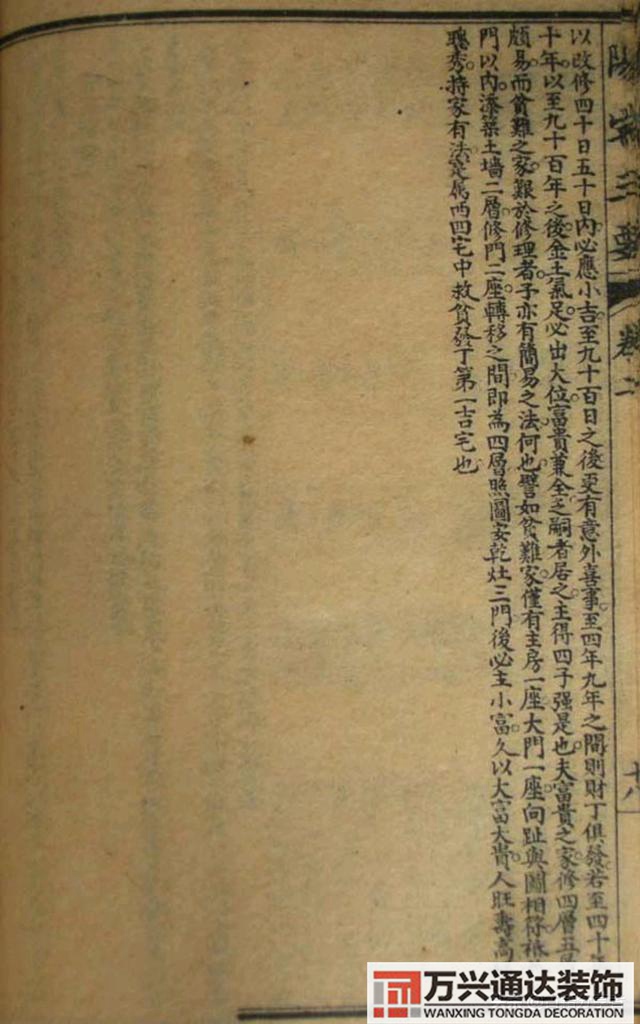 陽宅三要 卷二
十八
以改修四十日五十日內必應小吉至九十百日之後更有意外喜事至四年九年之間則財丁俱發若至四十
十年以至九十百年之後金土氣足必出大位富貴兼全乏嗣者居之主得四子强是也夫富貴之家修四層五
頗易而貧難之家艱於修理者子亦有簡易之法何也譬如貧難家僅有主房一座大門一座向趾與圖相符
門以內添築土墻二層修門二座轉移之間即為四層照圖安乾灶三門後必主小富久以大富大貴人旺壽高
聰秀持家有法定属西四宅中救貧發丁第一吉宅也
万兴通达装饰
WANXING TONGDA DECORATION